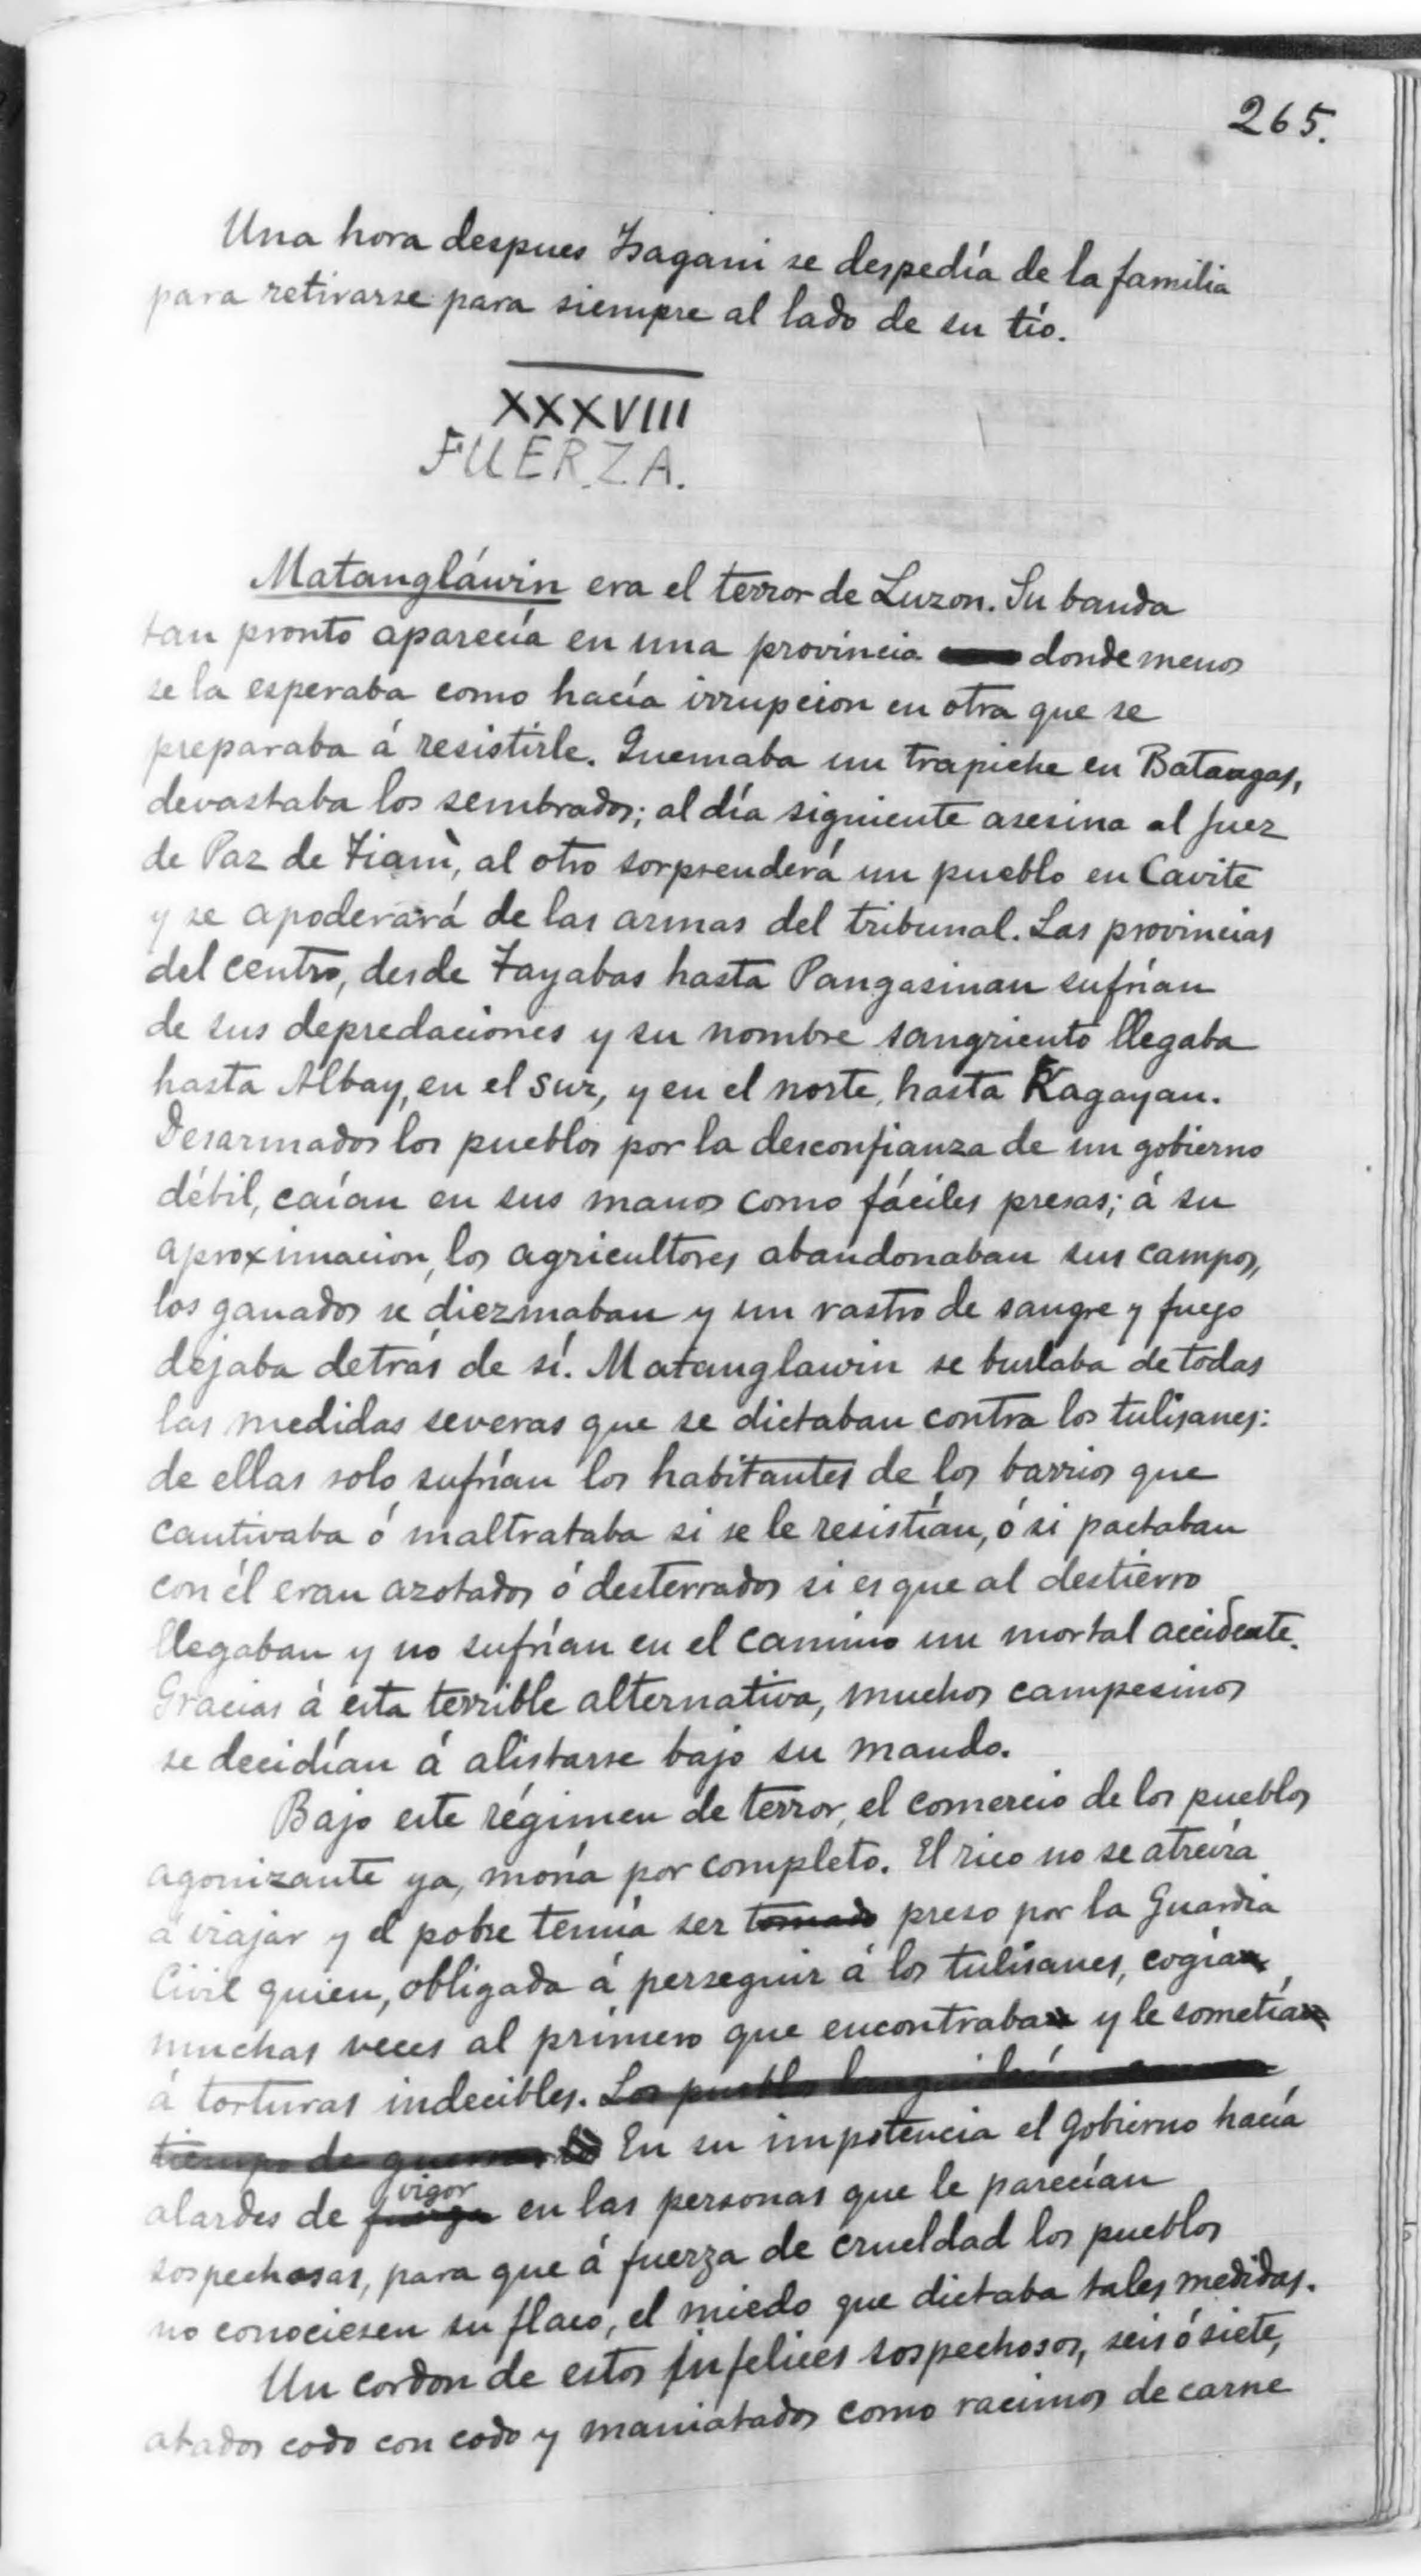 265.
Una hora despues Isagani se despedía de la familia
para retirarse para siempre al lado de su tío.
XXXVIII
FUERZA.
Matangláwin era el terror de Luzon. Su banda
tan pronto aparecía en una provincia donde menos
se la esperaba como hacía irrupcion en otra que se
preparaba á resistirle. Quemaba un trapiche en Batangas,
devastaba los sembrados; al día siguiente asesina al Juez
de Paz de Tianì, al otro sorprenderá un pueblo en Cavite
y se apoderará de las armas del tribunal. Las provincias
del centro, desde Tayabas hasta Pangasinan sufrían
de sus depredaciones y su nombre sangriento llegaba
hasta Albay, en el sur, y en el norte, hasta Kagayan.
Desarmados los pueblos por la desconfianza de un gobierno
débil, caían en sus manos como fáciles presas; á su
aproximacion, los agricultores abandonaban sus campos,
los ganados se diezmaban y un rastro de sangre y fuego
dejaba detrás de sí. Matanglawin se burlaba de todas
las medidas severas que se dictaban contra los tulisanes:
de ellas solo sufrían los habitantes de los barrios que
cautivaba ó maltrataba si se le resistían, ó si pactaban
con él eran azotados ó desterrados si es que al destierro
llegaban y no sufrían en el camino un mortal accidente.
Gracias á esta terrible alternativa, muchos campesinos
se decidían á alistarse bajo su mando.
Bajo este régimen de terror, el comercio de los pueblos
agonizante ya, moría por completo. El rico no se atrevía
á viajar y el pobre temía ser tomado preso por la Guardia
Civil quien, obligada á perseguir á los tulisanes, cogía
muchas veces al primero que encontraba y le sometía
á torturas indecibles. Los pueblos
tiempo de guerra En su impotencia el Gobierno hacía
vigor
alardes de fuerza en las personas que le parecían
sospechosas, para que á fuerza de crueldad los pueblos
no conociesen su flaco, el miedo que dictaba tales medidas.
Un cordon de estos infelices sospechosos, seis ó siete,
atados codo con codo y maniatados como racimos de carne